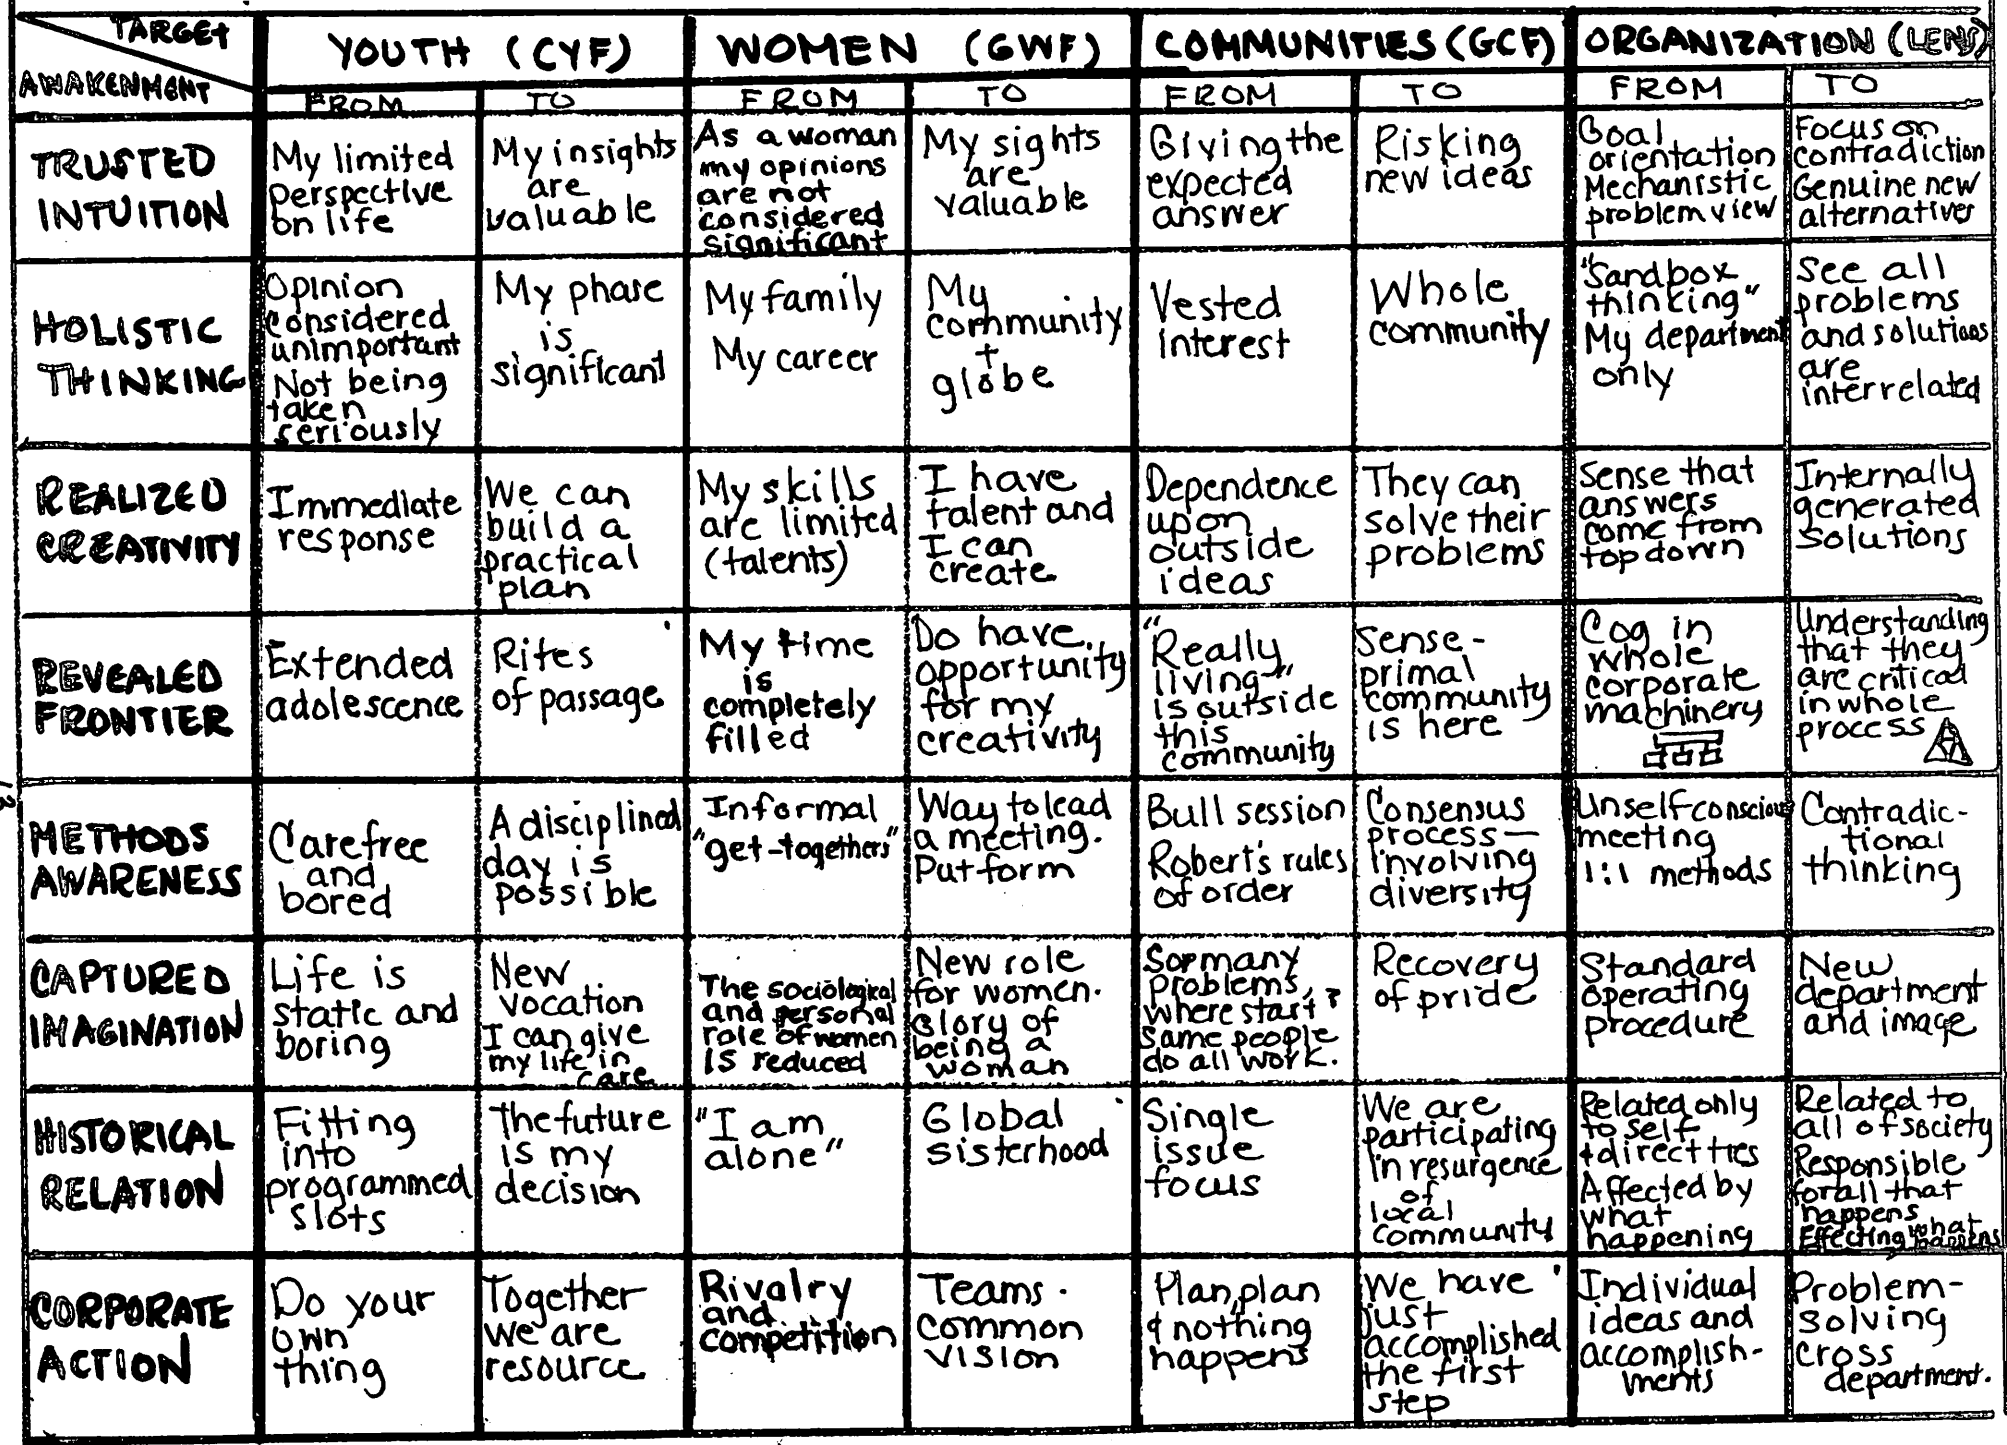 TARGET
AWAKENMENT
YOUTH (CYF)
WOMEN (GWF)
COMMUNITIES (GCF)
ORGANIZATION (LENS)
FROM
TO
FROM
TO
FROM
TO
FROM
TO
TRUSTED
INTUITION
My limited
perspective
on life
My insights
are
valuable
As a woman
my opinions
are not
considered
significant
My sights
are
valuable
Giving the
expected
answer
Risking
new ideas
Goal
orientation
Mechanistic
problem view
Focus on
contradiction
Genuine new
alternatives
HOLISTIC
THINKING
Opinion
considered
unimportant
Not being
taken
seriously
My phase
is
significant
My family
My career
My
community
+
globe
Vested
interest
Whole
community
"Sandbox
thinking"
My department
only
See all
problems
and solutions
are
interrelated
REALIZED
CREATIVITY
Immediate
response
We can
build a
practical
plan
My skills
are limited
(talents)
I have
talent and
I can
create
Dependence
upon
outside
ideas
They can
solve their
problems
Sense that
answers
come from
top down
Internally
generated
solutions
REVEALED
FRONTIER
Extended
adolescence
Rites
of passage
My time
is
completely
filled
Do have
opportunity
for my
creativity
"Really
living"
is outside
this
community
Sense-
primal
community
is here
Cog in
whole
corporate
machinery
Understanding
that they
are critical
in whole
process
METHODS
AWARENESS
Carefree
and
bored
A disciplined
day is
possible
Informal
"get-togethers"
Way to lead
a meeting.
Put form
Bull session
Robert's rules
of order
Consensus
process—
involving
diversity
Unselfconscious
meeting
1:1 methods
Contradic-
tional
thinking
CAPTURED
IMAGINATION
Life is
static and
boring
New
vocation
I can give
my life in
care
The sociological
and personal
role of women
is reduced
New role
for women.
Glory of
being a
woman
So many
problems,
where start?
Same people
do all work.
Recovery
of pride
Standard
operating
procedure
New
department
and image
HISTORICAL
RELATION
Fitting
into
programmed
slots
The future
is my
decision
"I am
alone"
Global
sisterhood
Single
issue
focus
We are
participating
in resurgence
of
local
community
Related only
to self
+ direct ties
Affected by
what
happening
Related to
all of society
Responsible
for all that
happens
Effecting what
happens
CORPORATE
ACTION
Do your
own
thing
Together
we are
resource
Rivalry
and
competition
Teams.
common
vision
Plan, plan
& nothing
happens
We have
just
accomplished
the first
step
Individual
ideas and
accomplish-
ments
Problem-
solving
cross
department.